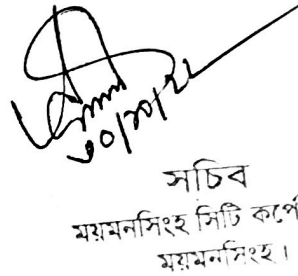 সচিব
ময়মনসিংহ সিটি কর্পে
ময়মনসিংহ।